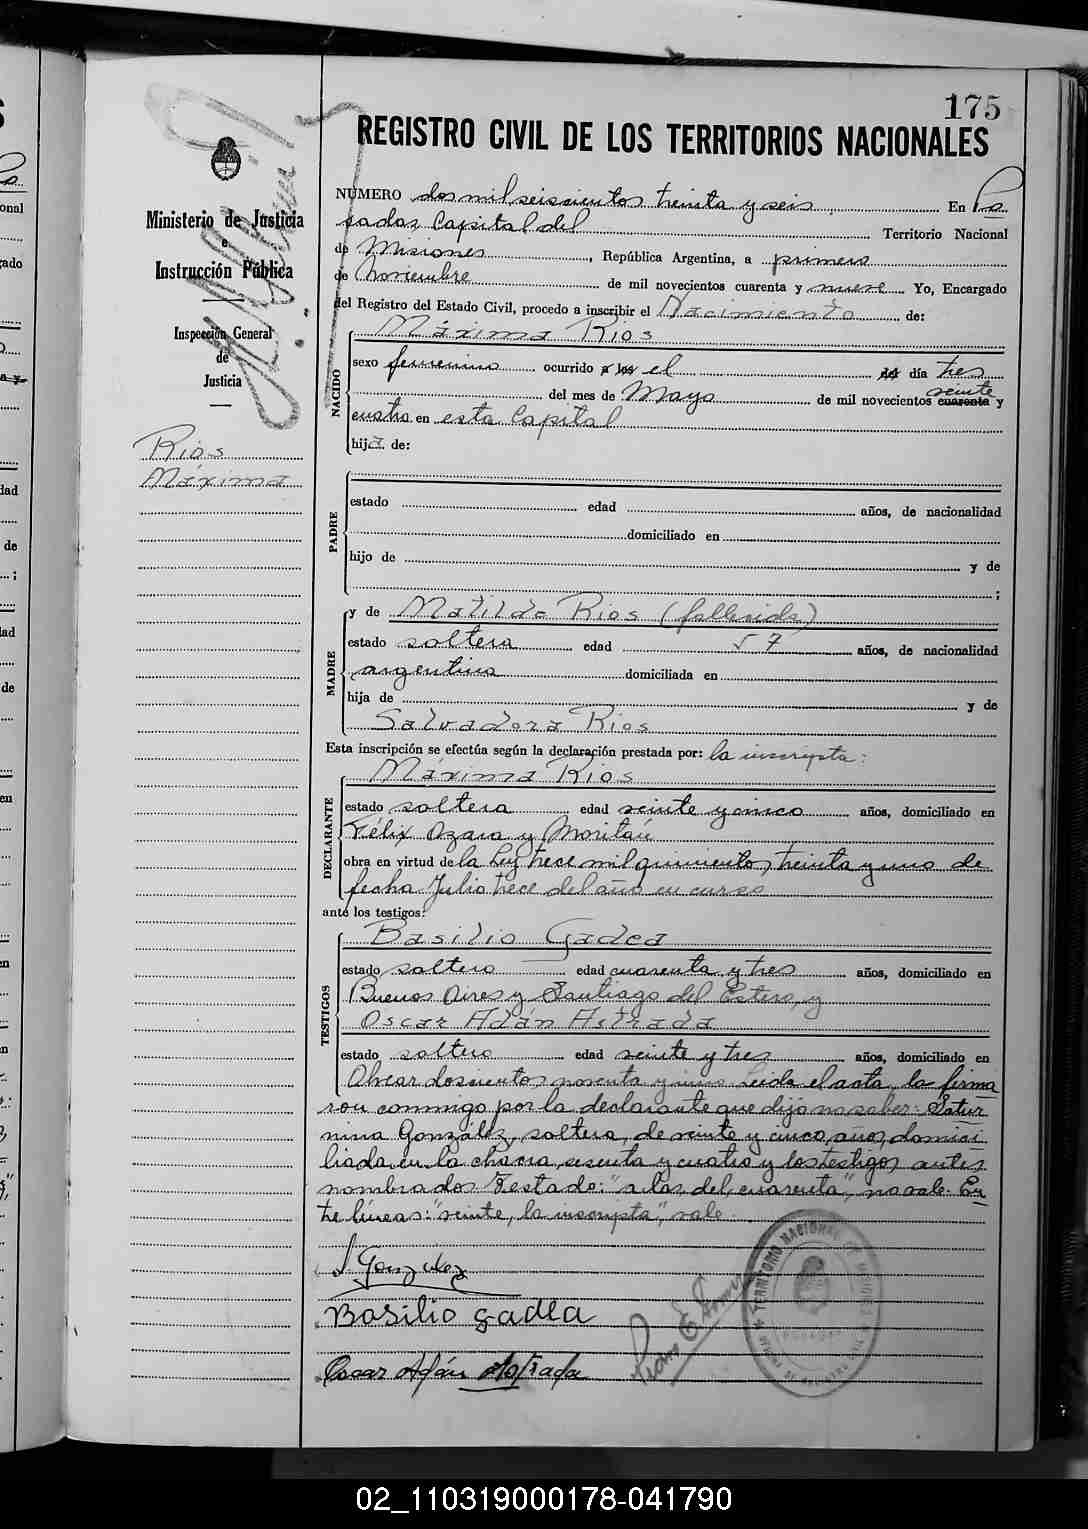 175
REGISTRO CIVIL DE LOS TERRITORIOS NACIONALES
Ministerio de Justicia
e
Instrucción Pública
Inspección General
de
Justicia
Rios
Máxima
NUMERO dos mil seiscientos treinta y seis En Po
sadas Capital del Territorio Nacional
de Misiones, República Argentina, a primero
de Noviembre de mil novecientos cuarenta y nueve Yo, Encargado
del Registro del Estado Civil, procedo a inscribir el Nacimiento de:
Máxima Rios
NACIDO
sexo femenino ocurrido a las el del día tres
veinte
del mes de Mayo de mil novecientos cuarenta y
cuatro en esta Capital
hija de:
PADRE
estado edad años, de nacionalidad
domiciliado en
hijo de y de
;
MADRE
y de Matilde Rios (fallecida)
estado soltera edad 57 años, de nacionalidad
argentina domiciliada en
hija de y de
Salvadora Rios
Esta inscripción se efectúa según la declaración prestada por: la inscripta:
DECLARANTE
Máxima Rios
estado soltera edad veinte y cinco años, domiciliado en
Félix Azara y Moritán
obra en virtud de la Ley trece mil quinientos treinta y uno de
fecha Julio trece del año en curso
ante los testigos:
TESTIGOS
Basilio Gadea
estado soltero edad cuarenta y tres años, domiciliado en
Buenos Aires y Santiago del Estero, y
Oscar Adán Astrada
estado soltero edad veinte y tres años, domiciliado en
Alvear doscientos noventa y uno Leida el acta, la firma
ron conmigo por la declarante que dijo no saber: Satur
nina González, soltera, de veinte y cinco años, domici
liada en la chacra sesenta y cuatro y los testigos antes
nombrados Testado: "a las, del, cuarenta", no vale. En
tre líneas: "veinte, la inscripta", vale.
S González
Basilio gadea
Oscar Adán Astrada
TERRITORIO NACIONAL DE MISIONES
POSADAS
02_110319000178-041790